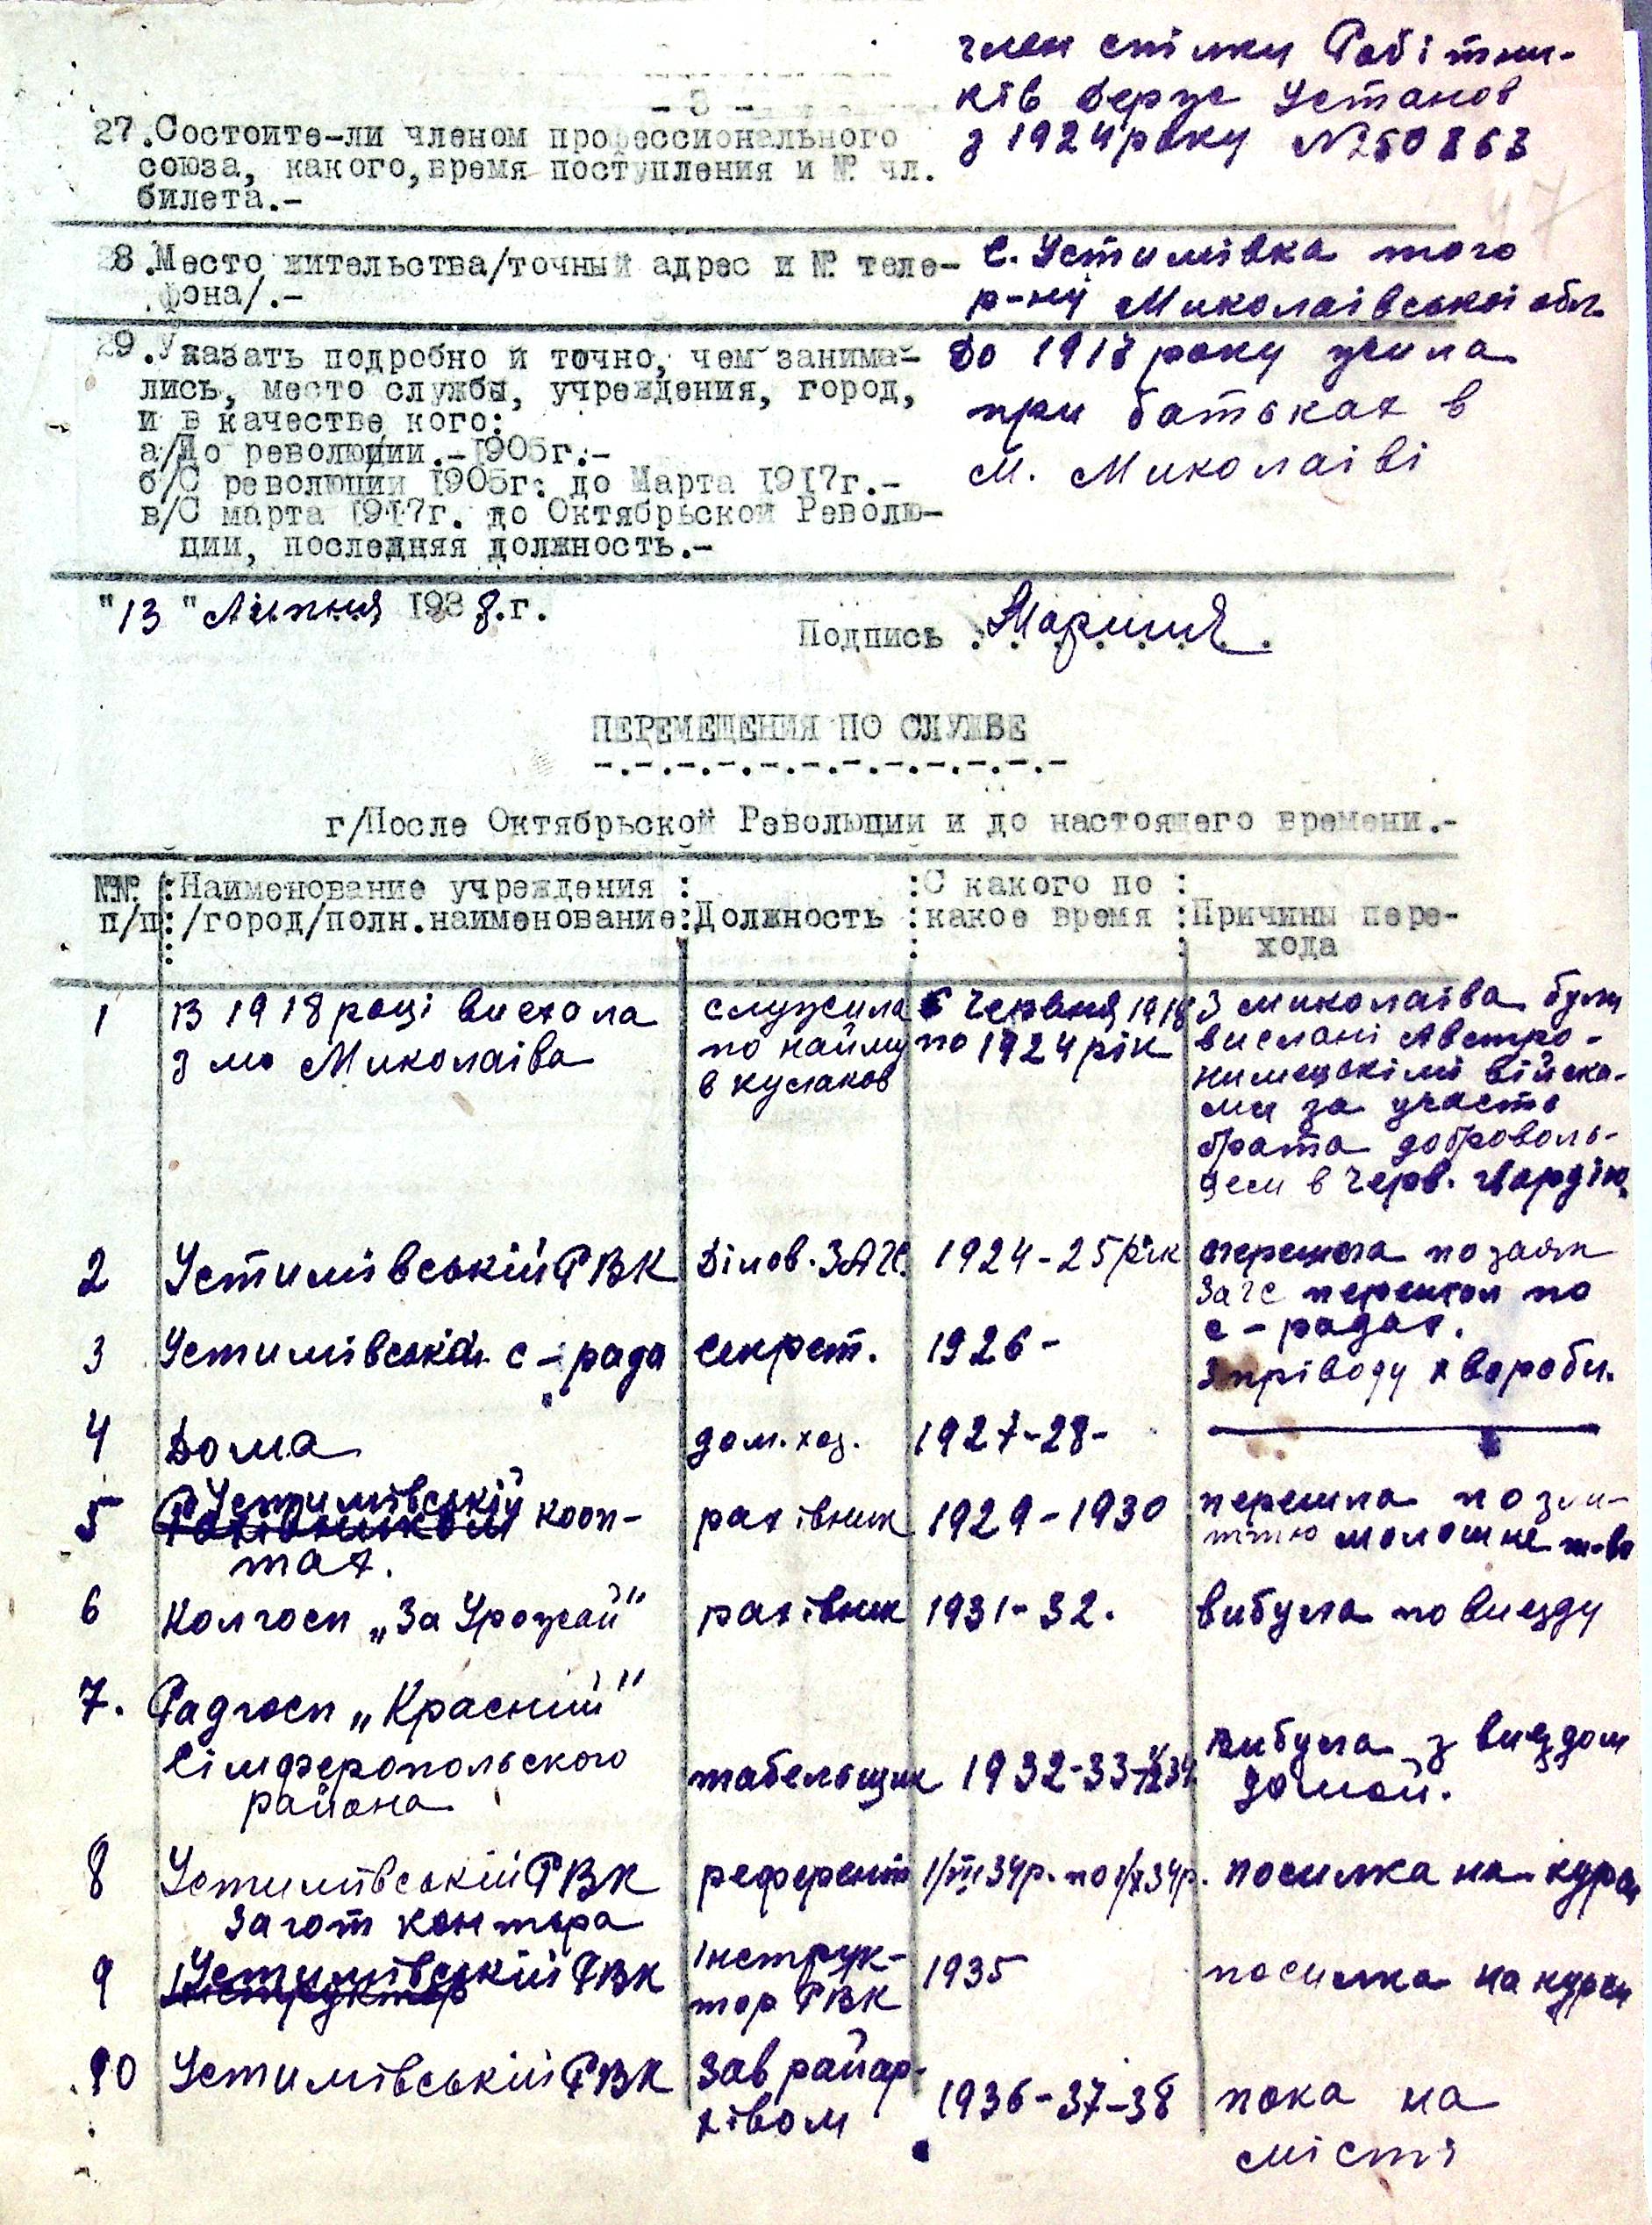 член спілки Робітни-
ків держ Установ
з 1924 року № 50863
- 5 -
27. Состоите-ли членом профессионального
союза, какого, время поступления и № чл.
билета.-
28. Место жительства/точный адрес и № теле-
фона/.-
с. Устимівка того
р-ну Миколаівськоі обл.
29. Указать подробно и точно, чем занима-
лись, место службы, учреждения, город,
и в качестве кого:
а/До революции.-1905г.-
б/С революции 1905г. до Марта 1917г.-
в/С марта 1917г. до Октябрьской Револю-
ции, последняя должность.-
До 1918 року жила
при батьках в
м. Миколаіві
"13" Липня 1938.г.
Подпись
ПЕРЕМЕЩЕНИЯ ПО СЛУЖБЕ
г/После Октябрьской Революции и до настоящего времени.-
№№ п/п : Наименование учреждения /город/полн.наименование : Должность : С какого по какое время : Причины пере-
хода
1 В 1918 році виехала
з мо Миколаіва
служила
по найму
в кулаков
с Червня 1918
по 1924 рік
З миколаіва були
вислані Австро-
нимецькімі війска-
ми за участь
брата доброволь-
цем в Черв. гвардію.
2 Устимівській РВК Ділов. ЗАГС. 1924-25 рік
перешла по заяві
Загс перейшол по
с-радах.
3 Устимівська с-рада Секрет. 1926-
з приводу хвороби.
4 Дома дом.хоз. 1927-28-
5 Устимівській кооп-
тах.
рахівник 1929-1930
перешла по злит-
тю молошне т-во
6 Колгосп „За Урожай" рахівник 1931-32. вибула по виезду
7. Радгосп „Красній"
Сімферопольского
района
табельщик 1932-33-34
вибула з виездом
домой.
8 Устимівській РВК
Загот контора
референт 1/VIII 34р. по 1/X 34р. посилка на курси
9 Устимівській РВК
Інструк-
тор РВК
1935 посилка на курси
10 Устимівській РВК
Зав райар-
хівом
1936-37-38
пока на
місті